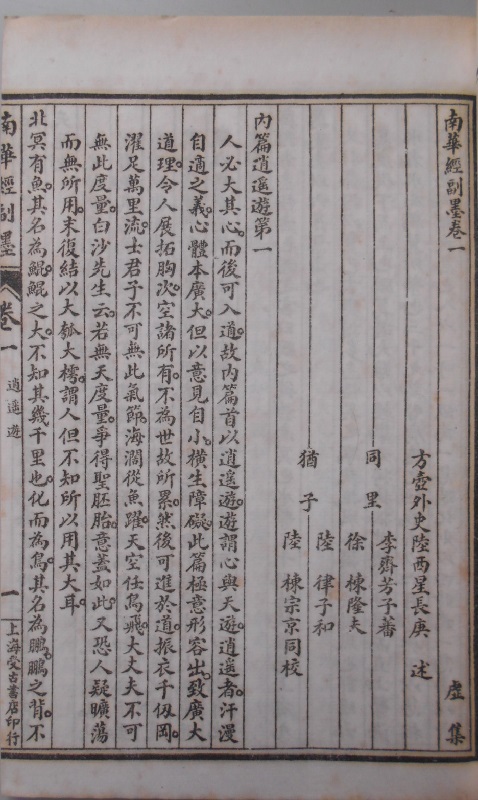 南華經副墨卷一　虛集
方壺外史陸西星長庚　述
同里　李齊芳子蕃
徐棟隆夫
猶子　陸律子和
陸棟宗京同校
內篇逍遙遊第一
人必大其心。而後可入道。故內篇首以逍遙遊。遊謂心與天遊。逍遙者。汗漫
自適之義。心體本廣大。但以意見自小。橫生障礙。此篇極意形容出。致廣大
道理。令人展拓胸次。空諸所有。不為世故所累。然後可進於道。振衣千仭岡。
濯足萬里流。士君子不可無此氣節。海濶從魚躍。天空任鳥飛。大丈夫不可
無此度量。白沙先生云。若無天度量。爭得聖胚胎。意蓋如此。又恐人疑曠蕩
而無所用。末復結以大瓠大樗。謂人但不知所以用其大耳。
北冥有魚。其名為鯤。鯤之大。不知其幾千里也。化而為鳥。其名為鵬。鵬之背。不
南華經副墨　卷一　逍遙遊　一　上海受古書店印行